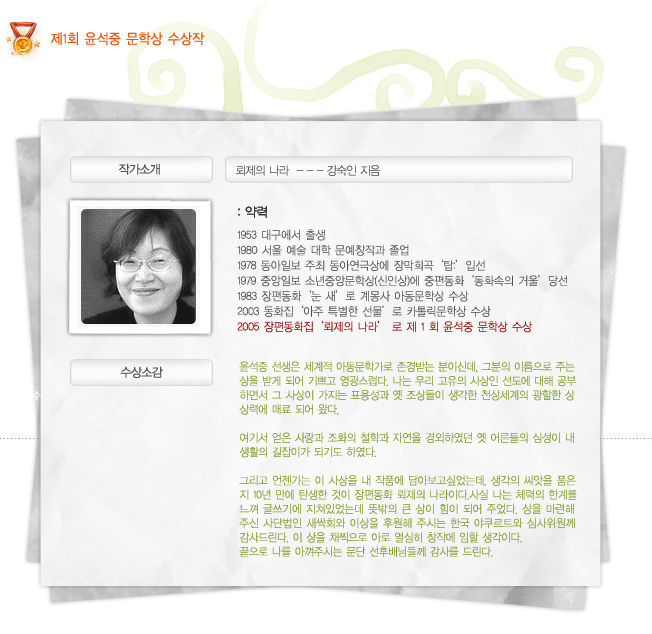 제1회 윤석중 문학상 수상작
작가소개
뢰제의 나라 --- 강숙인 지음
: 약력
1953 대구에서 출생
1980 서울 예술 대학 문예창작과 졸업
1978 동아일보 주최 동아연극상에 장막희곡 ‘탑:’ 입선
1979 중앙일보 소년중앙문학상(신인상)에 중편동화 ‘동화속의 거울’ 당선
1983 장편동화 ‘눈 새’ 로 계몽사 아동문학상 수상
2003 동화집 ‘아주 특별한 선물’ 로 카톨릭문학상 수상
2005 장편동화집 ‘뢰제의 나라’ 로 제 1 회 윤석중 문학상 수상
수상소감
윤석중 선생은 세계적 아동문학가로 존경받는 분이신데, 그분의 이름으로 주는
상을 받게 되어 기쁘고 영광스럽다. 나는 우리 고유의 사상인 선도에 대해 공부
하면서 그 사상이 가지는 표용성과 옛 조상들이 생각한 천상세계의 광할한 상
상력에 매료 되어 왔다.
여기서 얻은 사랑과 조화의 철학과 자연을 경외하였던 옛 어른들의 심성이 내
생활의 길잡이가 되기도 하였다.
그리고 언젠가는 이 사상을 내 작품에 담아보고싶었는데, 생각의 씨앗을 품은
지 10년 만에 탄생한 것이 장편동화 뢰제의 나라이다.사실 나는 체력의 한계를
느껴 글쓰기에 지쳐있었는데 뜻밖의 큰 상이 힘이 되어 주었다. 상을 마련해
주신 사단법인 새싹회와 이상을 후원해 주시는 한국 야쿠르트와 심사위원께
감사드린다. 이 상을 채찍으로 아로 열심히 창작에 임할 생각이다.
끝으로 나를 아껴주시는 문단 선후배님들께 감사를 드린다.